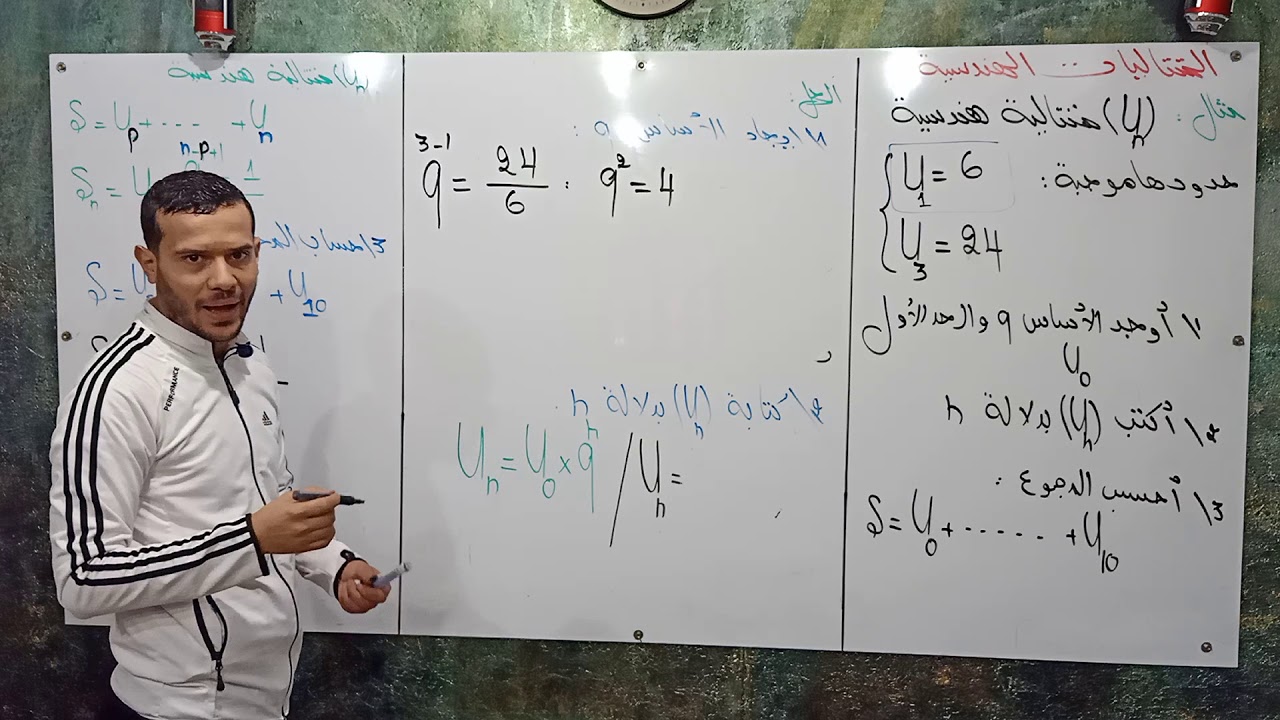 المتتاليات الهندسية
مثال : (Uₙ) متتالية هندسية
حدودها موجبة : U₁ = 6
U₃ = 24
1\ أوجد الأساس q والحد الأول
U₀
2\ أكتب (Uₙ) بدلالة n
3\ أحسب المجموع :
S = U₀ + ...... + U₁₀
الحل :
1\ إيجاد الأساس q :
q³⁻¹ = 24/6 : q² = 4
2\ كتابة (Uₙ) بدلالة n :
Uₙ = U₀ × q / Uₙ =
(Uₙ) متتالية هندسية
S = Uₚ + ... + Uₙ
Sₙ = U n-p+1 1
3\ حساب
S = U + U₁₀
PERFORMANCE
adidas